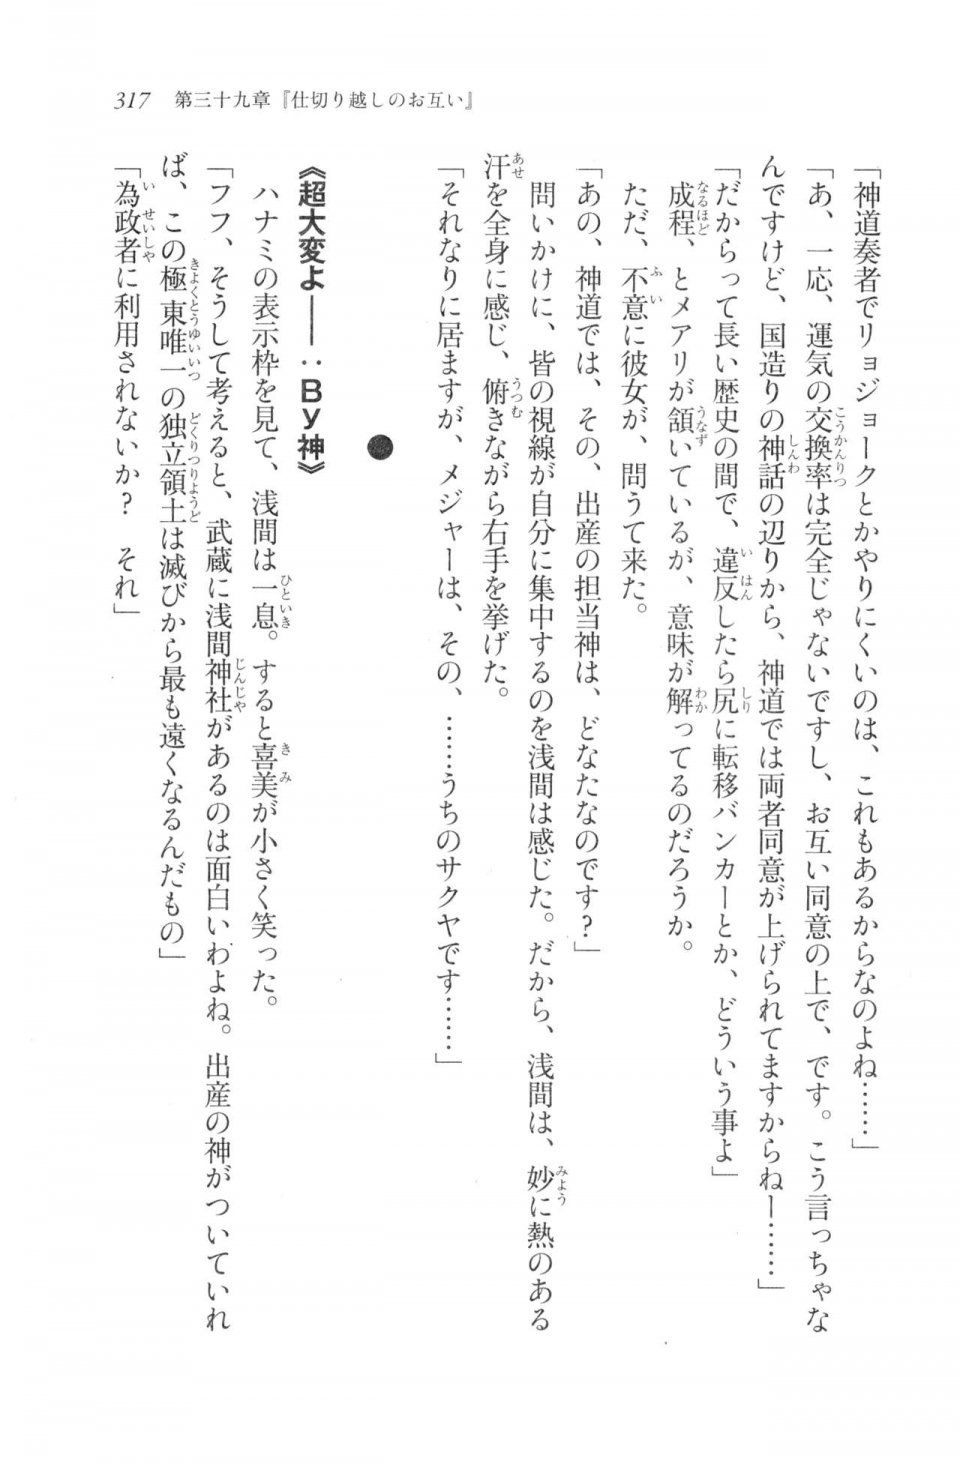 317 第三十九章『仕切り越しのお互い』
「神道奏者でリョジョークとかやりにくいのは、これもあるからなのよね……」
「あ、一応、運気の交換率は完全じゃないですし、お互い同意の上で、です。こう言っちゃな
んですけど、国造りの神話の辺りから、神道では両者同意が上げられてますからねー……」
「だからって長い歴史の間で、違反したら尻に転移バンカーとか、どういう事よ」
成程、とメアリが頷いているが、意味が解ってるのだろうか。
ただ、不意に彼女が、問うて来た。
「あの、神道では、その、出産の担当神は、どなたなのです？」
問いかけに、皆の視線が自分に集中するのを浅間は感じた。だから、浅間は、妙に熱のある
汗を全身に感じ、俯きながら右手を挙げた。
「それなりに居ますが、メジャーは、その、……うちのサクヤです……」
●
《超大変よ――：By神》
ハナミの表示枠を見て、浅間は一息。すると喜美が小さく笑った。
「フフ、そうして考えると、武蔵に浅間神社があるのは面白いわよね。出産の神がついていれ
ば、この極東唯一の独立領土は滅びから最も遠くなるんだもの」
「為政者に利用されないか？　それ」